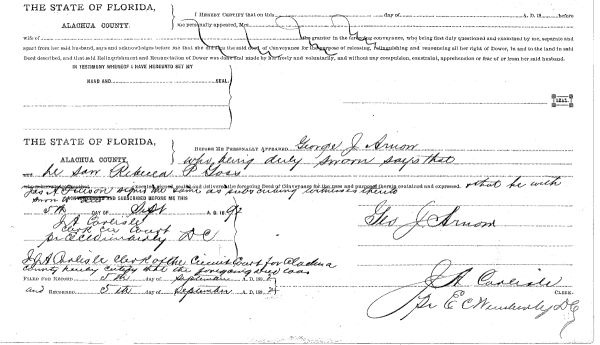 THE STATE OF FLORIDA,
ALACHUA COUNTY.
I HEREBY CERTIFY that on this day of A. D. 18 before
me personally appeared, Mrs.
wife of the grantor in the foregoing conveyance, who being first duly questioned and examined by me, separate and
apart from her said husband, says and acknowledges before me that she did the said deed of Conveyance for the purpose of releasing, relinquishing and renouncing all her right of Dower, in and to the land in said
Deed described, and that said Relinquishment and Renunciation of Dower was done and made by her freely and voluntarily, and without any compulsion, constraint, apprehension or fear of or from her said husband.
IN TESTIMONY WHEREOF I HAVE HEREUNTO SET BY
HAND AND SEAL.
SEAL.
THE STATE OF FLORIDA,
ALACHUA COUNTY.
BEFORE ME PERSONALLY APPEARED George J Arnow
who being duly sworn says that
he saw Rebecca P Goss
executed signed sealed and delivered the foregoing Deed of Conveyance for the uses and purposes therein contained and expressed. that he with
signed the same as subscribing witnesses thereto
SUBSCRIBED BEFORE ME THIS
5th DAY OF Sept A. D. 189
J A Carlisle
Clerk Cir Court
D C
Geo J Arnow
J A Carlisle Clerk of the Circuit Court for Alachua
County hereby certify that the foregoing deed was
FILED FOR RECORD 5th day of September A. D. 189
and RECORDED 5th day of September A. D. 189
J A Carlisle
CLERK.
Pr E C Wimberly D C